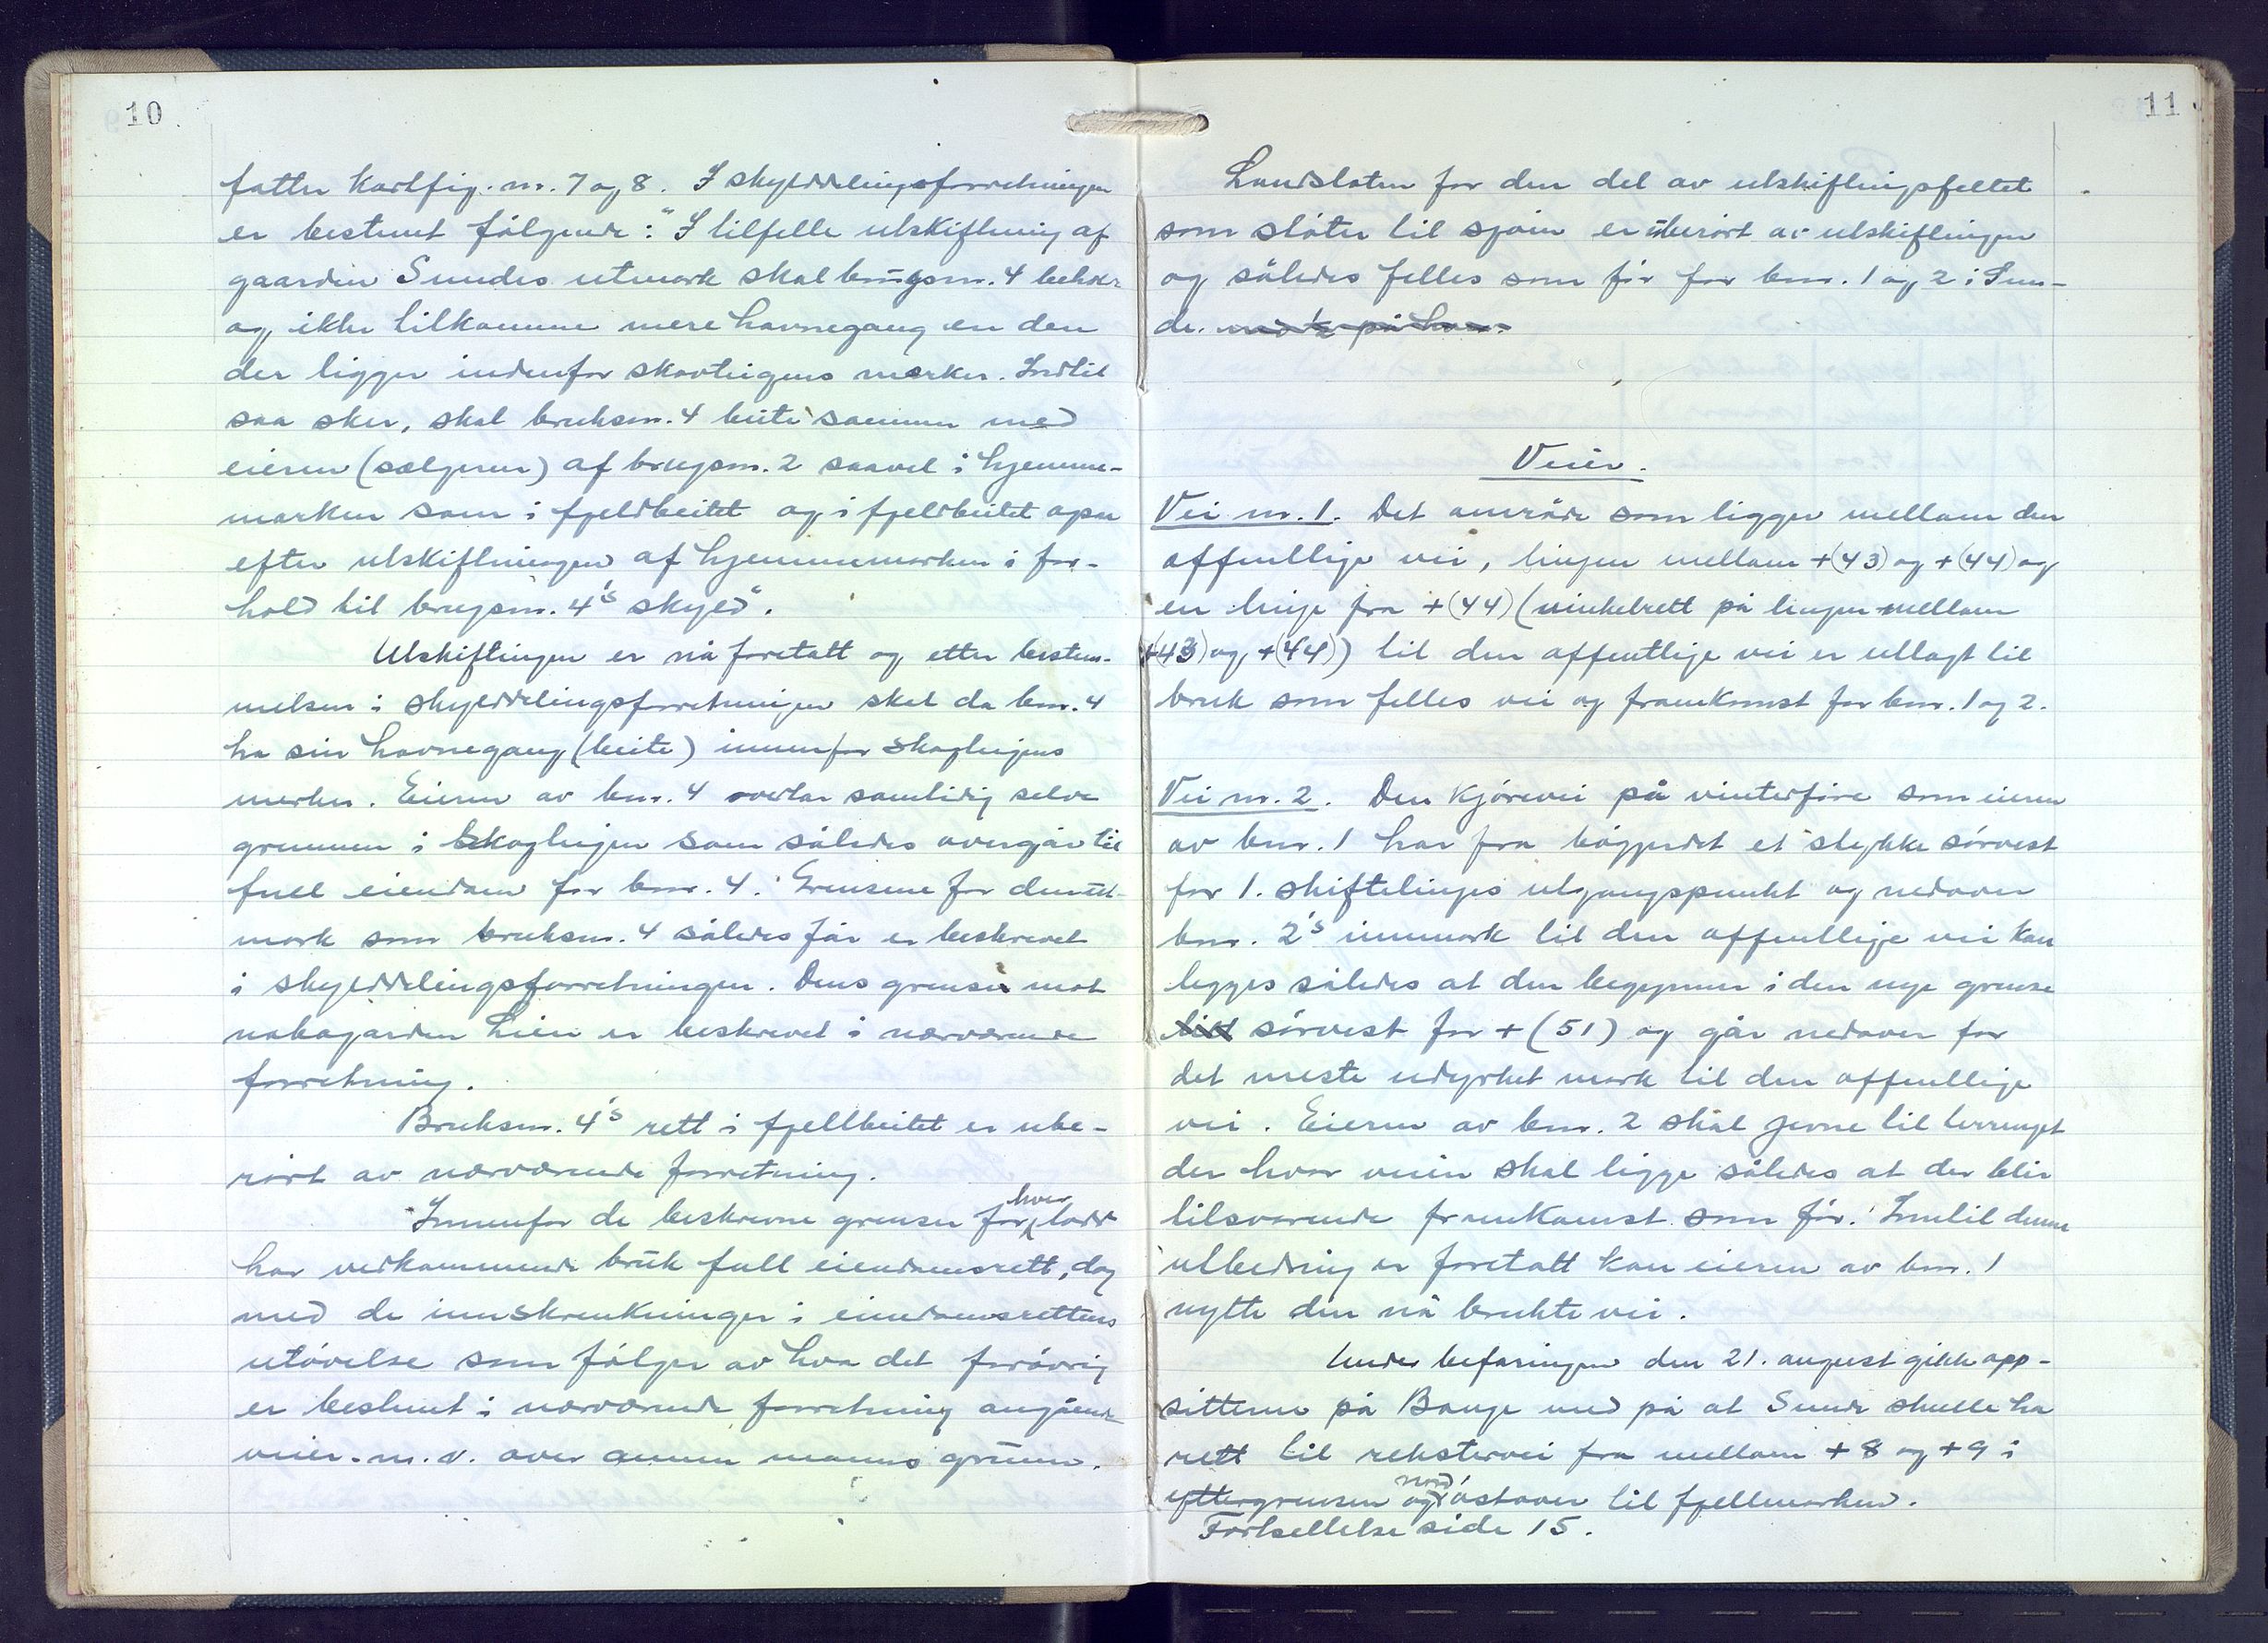 10
fatter kartfig. nr. 7 og 8. I skylddelingsforretningen
er bestemt følgende: "I tilfelle utskiftning af
gaarden Sundes utmark skal brugsnr. 4 beholde
og ikke tilkomme mere havnegang en den
der ligger indenfor skovteigens merker. Indtil
saa sker, skal bruksnr. 4 beite sammen med
eieren (sælgeren) af brugsnr. 2 saavel i hjemme-
marken som i fjeldbeitet og i fjeldbeitet
efter utskiftningen af hjemmemarken i for-
hold til brugsnr. 4's skyld".
Utskiftingen er nå foretatt og etter bestem-
melsen i skylddelingsforretningen skal da bnr. 4
ha sin havnegang (beite) innenfor skogteigens
merker. Eieren av bnr. 4 overtar samtidig selve
grunnen i skogteigen som således overgår til
full eiendom for bnr. 4. Grensene for den ut-
mark som bruksnr. 4 således får er beskrevet
i skylddelingsforretningen. Dens grense mot
nabogarden Lien er beskrevet i nærværende
forretning.
Bruksnr. 4's rett i fjellbeitet er ube-
rørt av nærværende forretning.
Innenfor de beskrevne grenser for hver lodd
har vedkommende bruk full eiendomsrett, dog
med de innskrenkninger i eiendomsrettens
utøvelse som følger av hva det forøvrig
er bestemt i nærværende forretning angående
veier m. v. over annen manns grunn.
11
Landsloten for den del av utskiftingsfeltet
som støter til sjøen er uberørt av utskiftingen
og således felles som før for bnr. 1 og 2 i Sun-
de.
Veier.
Vei nr. 1. Det område som ligger mellom den
offentlige vei, linjen mellom +(43) og +(44) og
en linje fra +(44) (vinkelrett på linjen mellom
+(43) og +(44)) til den offentlige vei er utlagt til
bruk som felles vei og framkomst for bnr. 1 og 2.
Vei nr. 2. Den kjørevei på vinterføre som eieren
av bnr. 1 har fra bøgjerdet et stykke sørvest
for 1. skiftelinjes utgangspunkt og nedover
bnr. 2's innmark til den offentlige vei kan
legges således at den begynner i den nye grense
litt sørvest for +(51) og går nedover for
det meste udyrket mark til den offentlige
vei. Eieren av bnr. 2 skal jevne til terrenget
der hvor veien skal ligge således at der blir
tilsvarende framkomst som før. Inntil denne
utbedring er foretatt kan eieren av bnr. 1
nytte den nå brukte vei.
Under befaringen den 21. august gikk opp-
sitterne på Bauge med på at Sunde skulle ha
rett til rekstervei fra mellom +8 og +9 i
yttergrensen og nordøstover til fjellmarken.
Fortsettelse side 15.